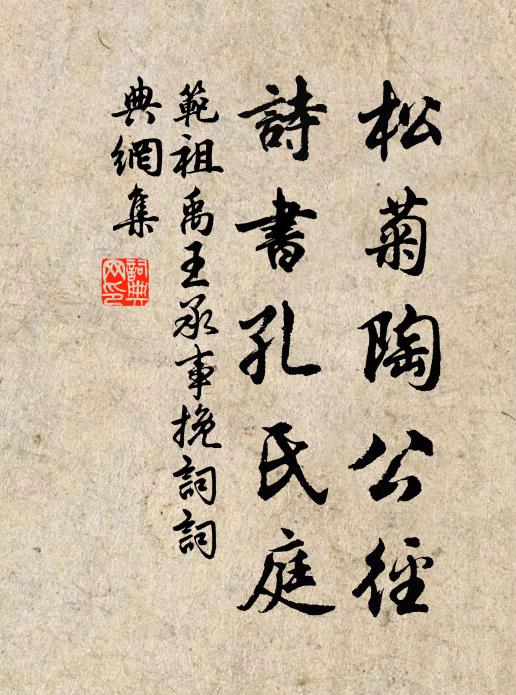 松菊陶公徑
詩書孔氏庭
範祖禹王承事挽詞詞
典網集
詞典网印